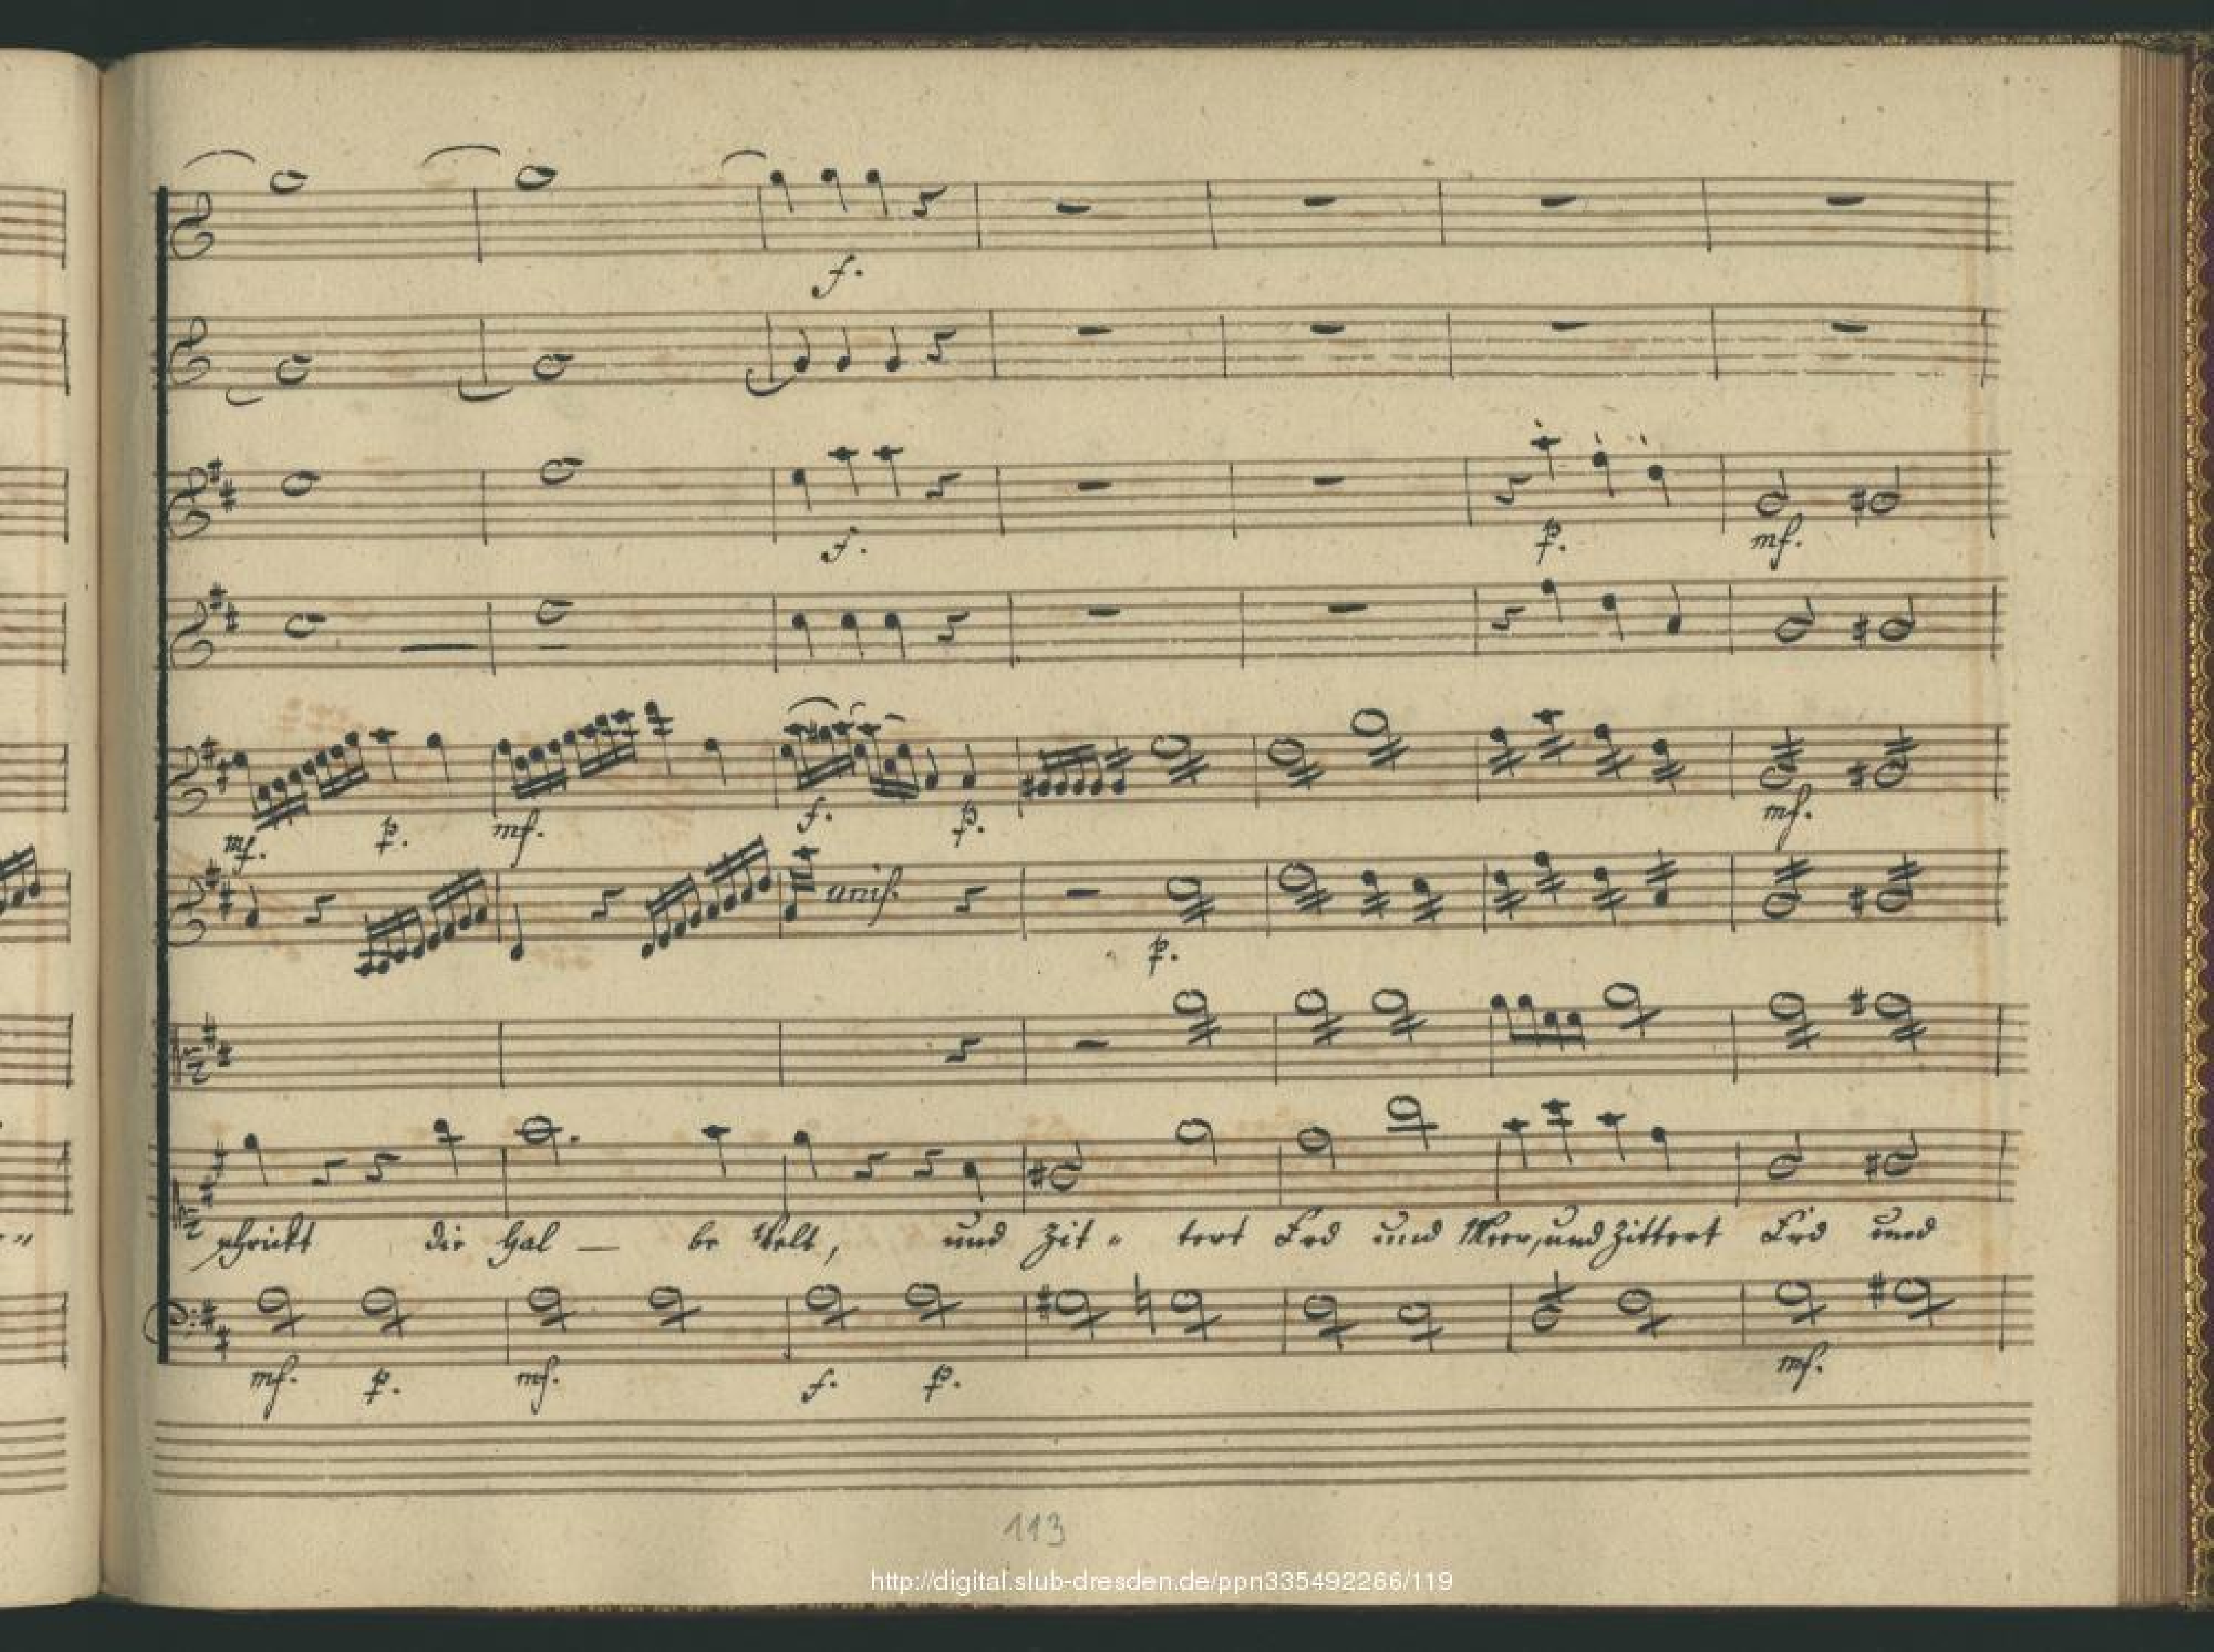 f.
f.
p.
mf.
mf.
p.
mf.
f.
p.
mf.
unis.
p.
schrickt die Hal — be Welt, und zit „ tert Erd und Meer, und zittert Erd und
mf.
p.
mf.
f.
p.
mf.
113
http://digital.slub-dresden.de/ppn335492266/119